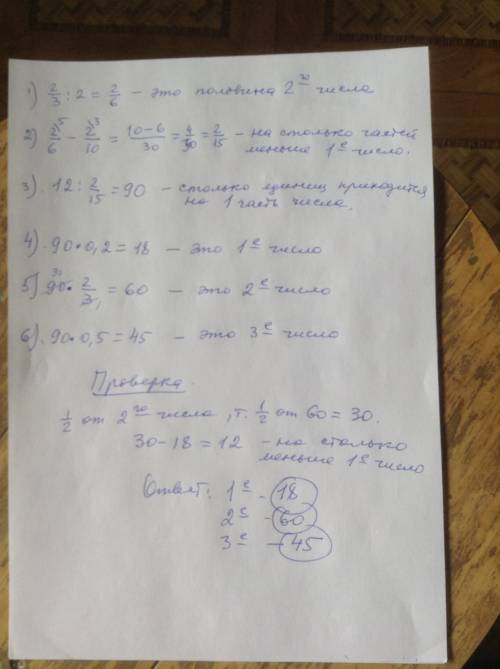 1) 2/3 : 2 = 2/6 – это половина 2го числа
2) 2⁵/6 – 2³/10 = 10-6/30 = 4/30 = 2/15 – на столько частей
меньше 1е число.
3). 12 : 2/15 = 90 – столько единиц приходится
на 1 часть числа.
4). 90 • 0,2 = 18 – это 1е число
5) 90³⁰ • 2/3₁ = 60 – это 2е число
6). 90 • 0,5 = 45 – это 3е число
Проверка.
1/2 от 2го числа, т. 1/2 от 60 = 30.
30 - 18 = 12 – на столько
меньше 1е число
Ответ: 1е - 18
2е - 60
3е – 45